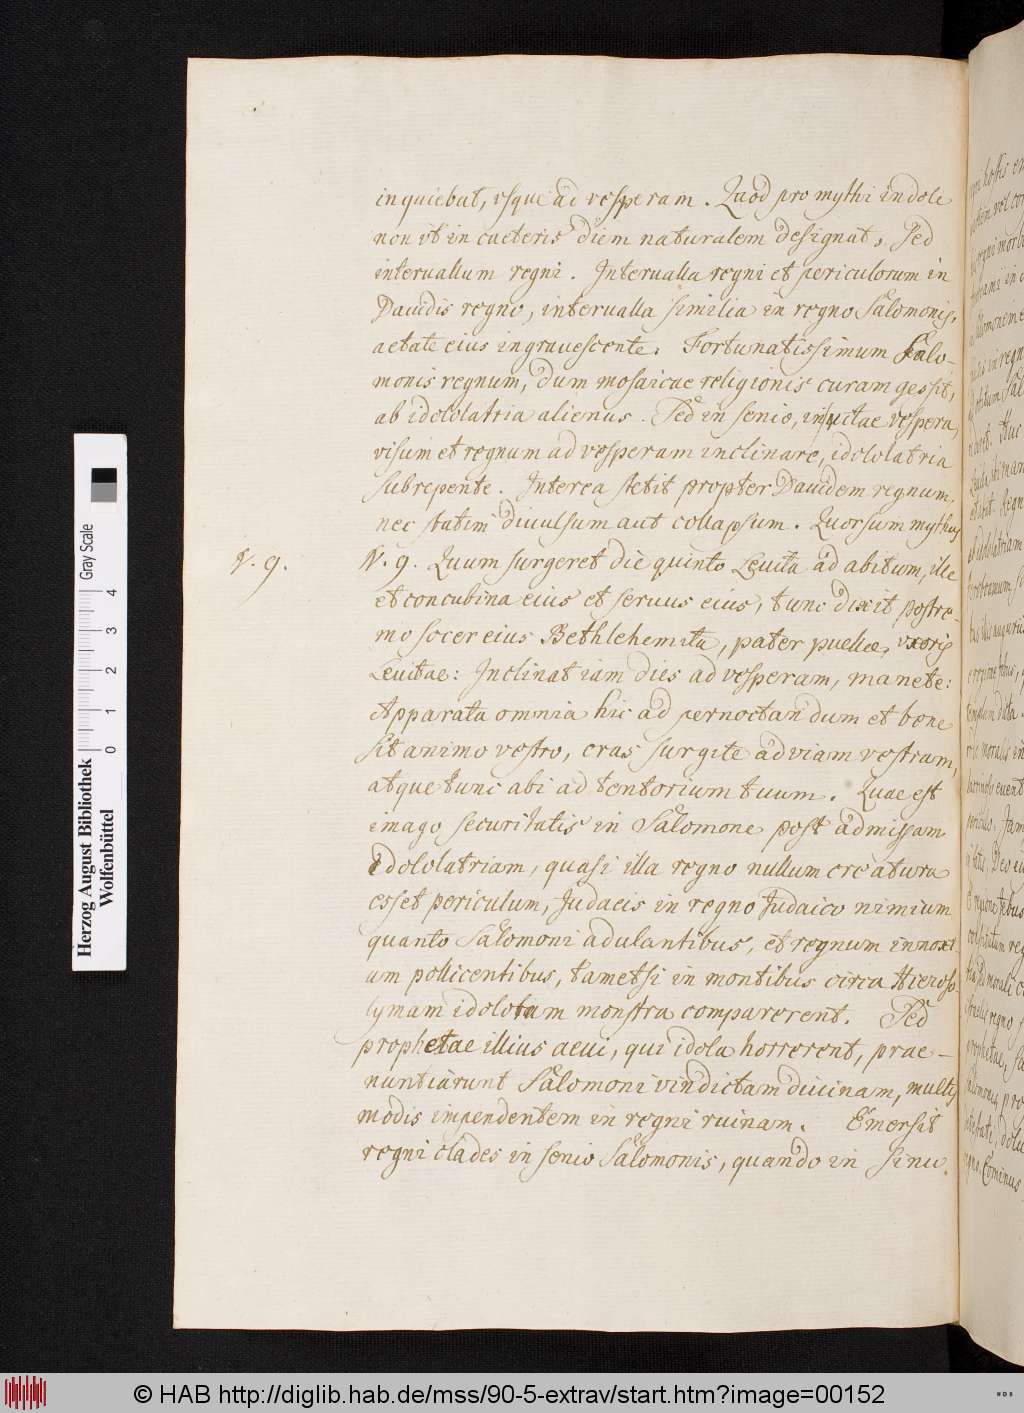 inquiebat, vsque ad vesperam. Quod pro mythi indole
non vt in caeteris diem naturalem designat, sed
interuallum regni. Interualla regni et periculorum in
Dauidis regno, interualla similia in regno Salomonis,
aetate eius ingrauescente. Fortunatissimum Salo-
monis regnum, dum mosaicae religionis curam gessit,
ab idololatria alienus. Sed in senio, in vitae vespera,
visum et regnum ad vesperam inclinare, idololatria
subrepente. Interea stetit propter Dauidem regnum,
nec statim diuulsum aut collapsum. Quorsum mythus
V. 9.
V. 9. Quum surgeret die quinto Leuita ad abitum, ille
et concubina eius et seruus eius, tunc dixit postre-
mo socer eius Bethlehemita, pater puellae, vxoris
Leuitae: Inclinat iam dies ad vesperam, manete:
Apparata omnia hic ad pernoctandum et bene
sit animo vestro, cras surgite ad viam vestram,
atque tunc abi ad tentorium tuum. Quae est
imago securitatis in Salomone post admissam
idololatriam, quasi illa regno nullum creatura
esset periculum, Judaeis in regno Judaico nimium
quanto Salomoni adulantibus, et regnum innoxi
um pollicentibus, tametsi in montibus circa Hieroso-
lymam idolorum monstra comparerent. Sed
prophetae illius aeui, qui idola horrerent, prae-
nuntiarunt Salomoni vindictam diuinam, multis
modis impendentem in regni ruinam. Emersit
regni clades in senio Salomonis, quando in sinu
Herzog August Bibliothek
Wolfenbüttel
0 1 2 3 4 Gray Scale
© HAB http://diglib.hab.de/mss/90-5-extrav/start.htm?image=00152